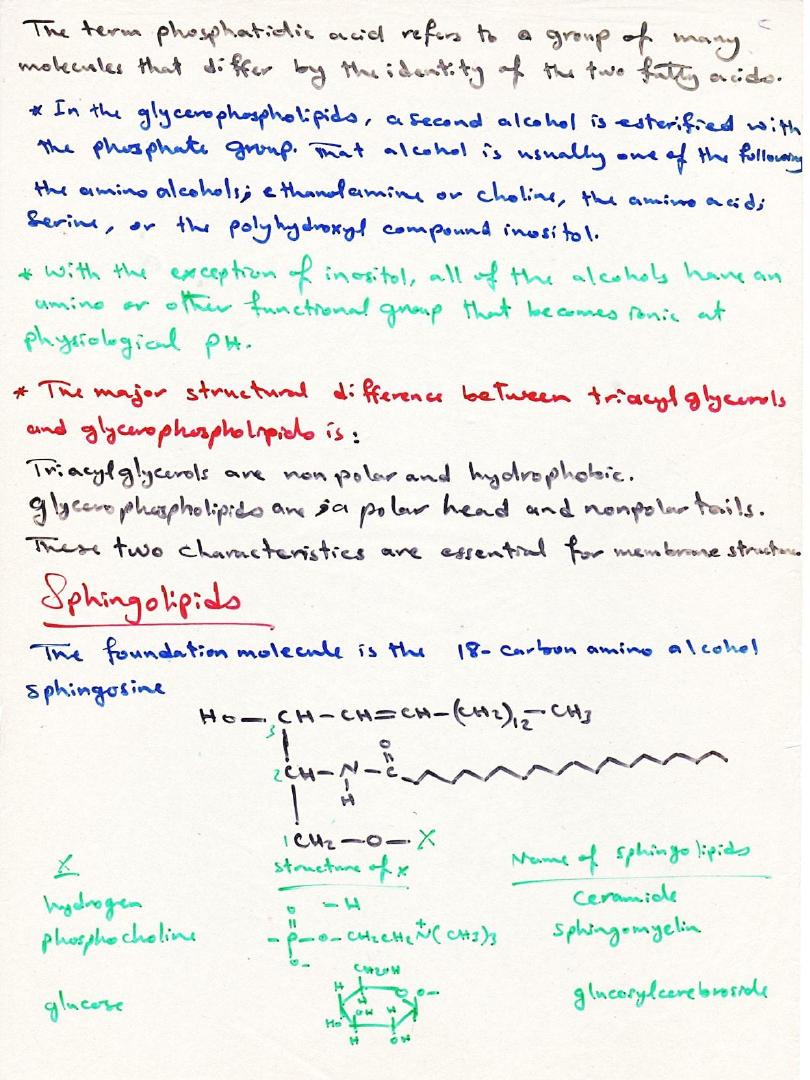 The term phosphatidic acid refers to a group of many
molecules that differ by the identity of the two fatty acids.
* In the glycerophospholipids, a second alcohol is esterified with
the phosphate group. That alcohol is usually one of the following
the amino alcohols; ethanolamine or choline, the amino acid;
Serine, or the polyhydroxyl compound inositol.
* with the exception of inositol, all of the alcohols have an
amino or other functional group that becomes ionic at
physiological pH.
* The major structural difference between triacylglycerols
and glycerophospholipids is:
Triacylglycerols are nonpolar and hydrophobic.
glycerophospholipids are a polar head and nonpolar tails.
These two characteristics are essential for membrane structure
Sphingolipids
The foundation molecule is the 18-carbon amino alcohol
sphingosine
HO — 3 CH – CH = CH – (CH2)12 – CH3
O
2 CH – N – C
H
1 CH2 – O – X
X structure of x Name of sphingolipids
hydrogen – H Ceramide
phosphocholine – P – O – CH2CH2N+(CH3)3 sphingomyelin
O
O-
CH2OH
glucose H O O– glucosylcerebroside
H OH H
HO
H OH